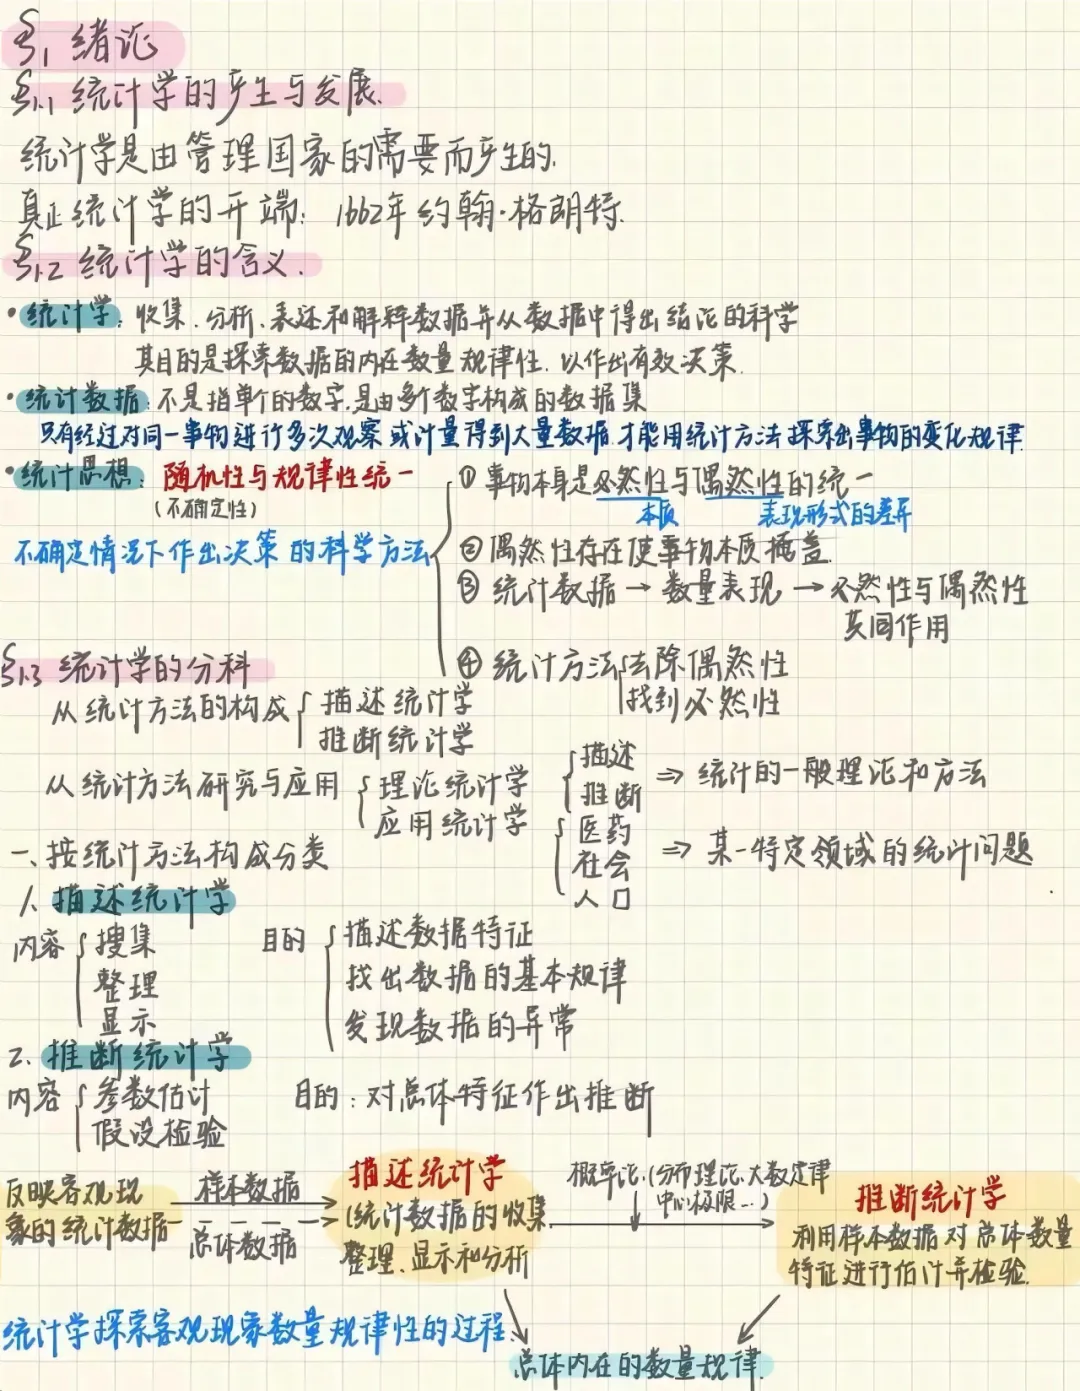 §1 绪论
§1.1 统计学的产生与发展.
统计学是由管理国家的需要而产生的.
真正统计学的开端: 1662年 约翰·格朗特.
§1.2 统计学的含义.
·统计学: 收集、分析、表述和解释数据并从数据中得出结论的科学
其目的是探索数据的内在数量规律性, 以作出有效决策.
·统计数据: 不是指单个的数字,是由多个数字构成的数据集
只有经过对同一事物进行多次观察或计量得到大量数据,才能用统计方法探索出事物的变化规律.
·统计思想: 随机性与规律性统一
(不确定性)
不确定情况下作出决策的科学方法
① 事物本身是必然性与偶然性的统一
本质 表现形式的差异
② 偶然性存在使事物本质掩盖.
③ 统计数据→数量表现→必然性与偶然性
共同作用
④ 统计方法 去除偶然性
找到必然性
§1.3 统计学的分科
从统计方法的构成 描述统计学
推断统计学
从统计方法研究与应用 理论统计学
应用统计学
描述
推断
⇒ 统计的一般理论和方法
医药
社会
人口
⇒ 某一特定领域的统计问题
一、按统计方法构成分类
1. 描述统计学
内容 搜集
整理
显示
目的 描述数据特征
找出数据的基本规律
发现数据的异常
2. 推断统计学
内容 参数估计
假设检验
目的: 对总体特征作出推断
反映客观现
象的统计数据
样本数据
总体数据
描述统计学
(统计数据的收集,
整理、显示和分析
概率论 (分布理论、大数定律
中心极限...)
推断统计学
利用样本数据对总体数量
特征进行估计并检验.
统计学探索客观现象数量规律性的过程.
总体内在的数量规律.